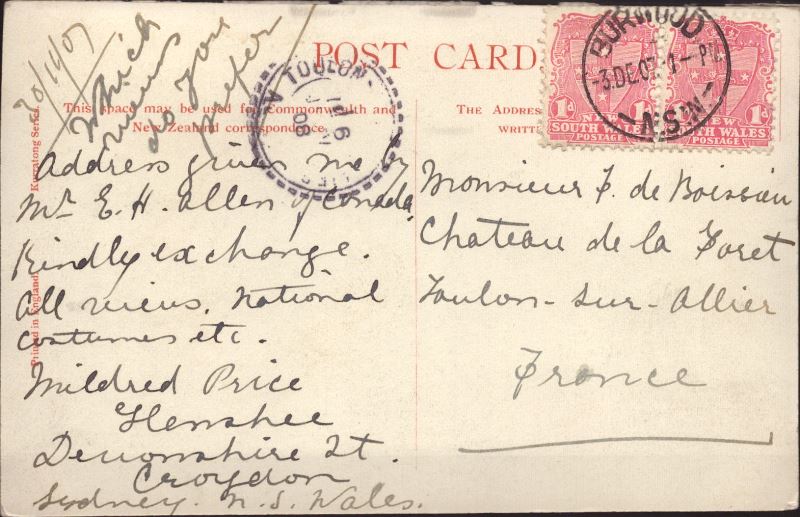 30/11/07
Which
views
do you
prefer
POST CARD
This space may be used for Commonwealth and
New Zealand correspondence.
Address given me by
Mr E. H. Allen of Canada,
Kindly exchange.
All views, National
costumes etc.
Mildred Price
Devonshire St.
Croydon
Sydney. N. S. Wales.
Kurratong Series.
Printed in England
TOULON
16
08
THE ADDRESS
WRITTE
BURWOOD
3.DE.07
N.S.W
1d
NEW
SOUTH WALES
POSTAGE
1d
NEW
SOUTH WALES
POSTAGE
Monsieur F. de Boissieu
Chateau de la Foret
Toulon-sur-Allier
France